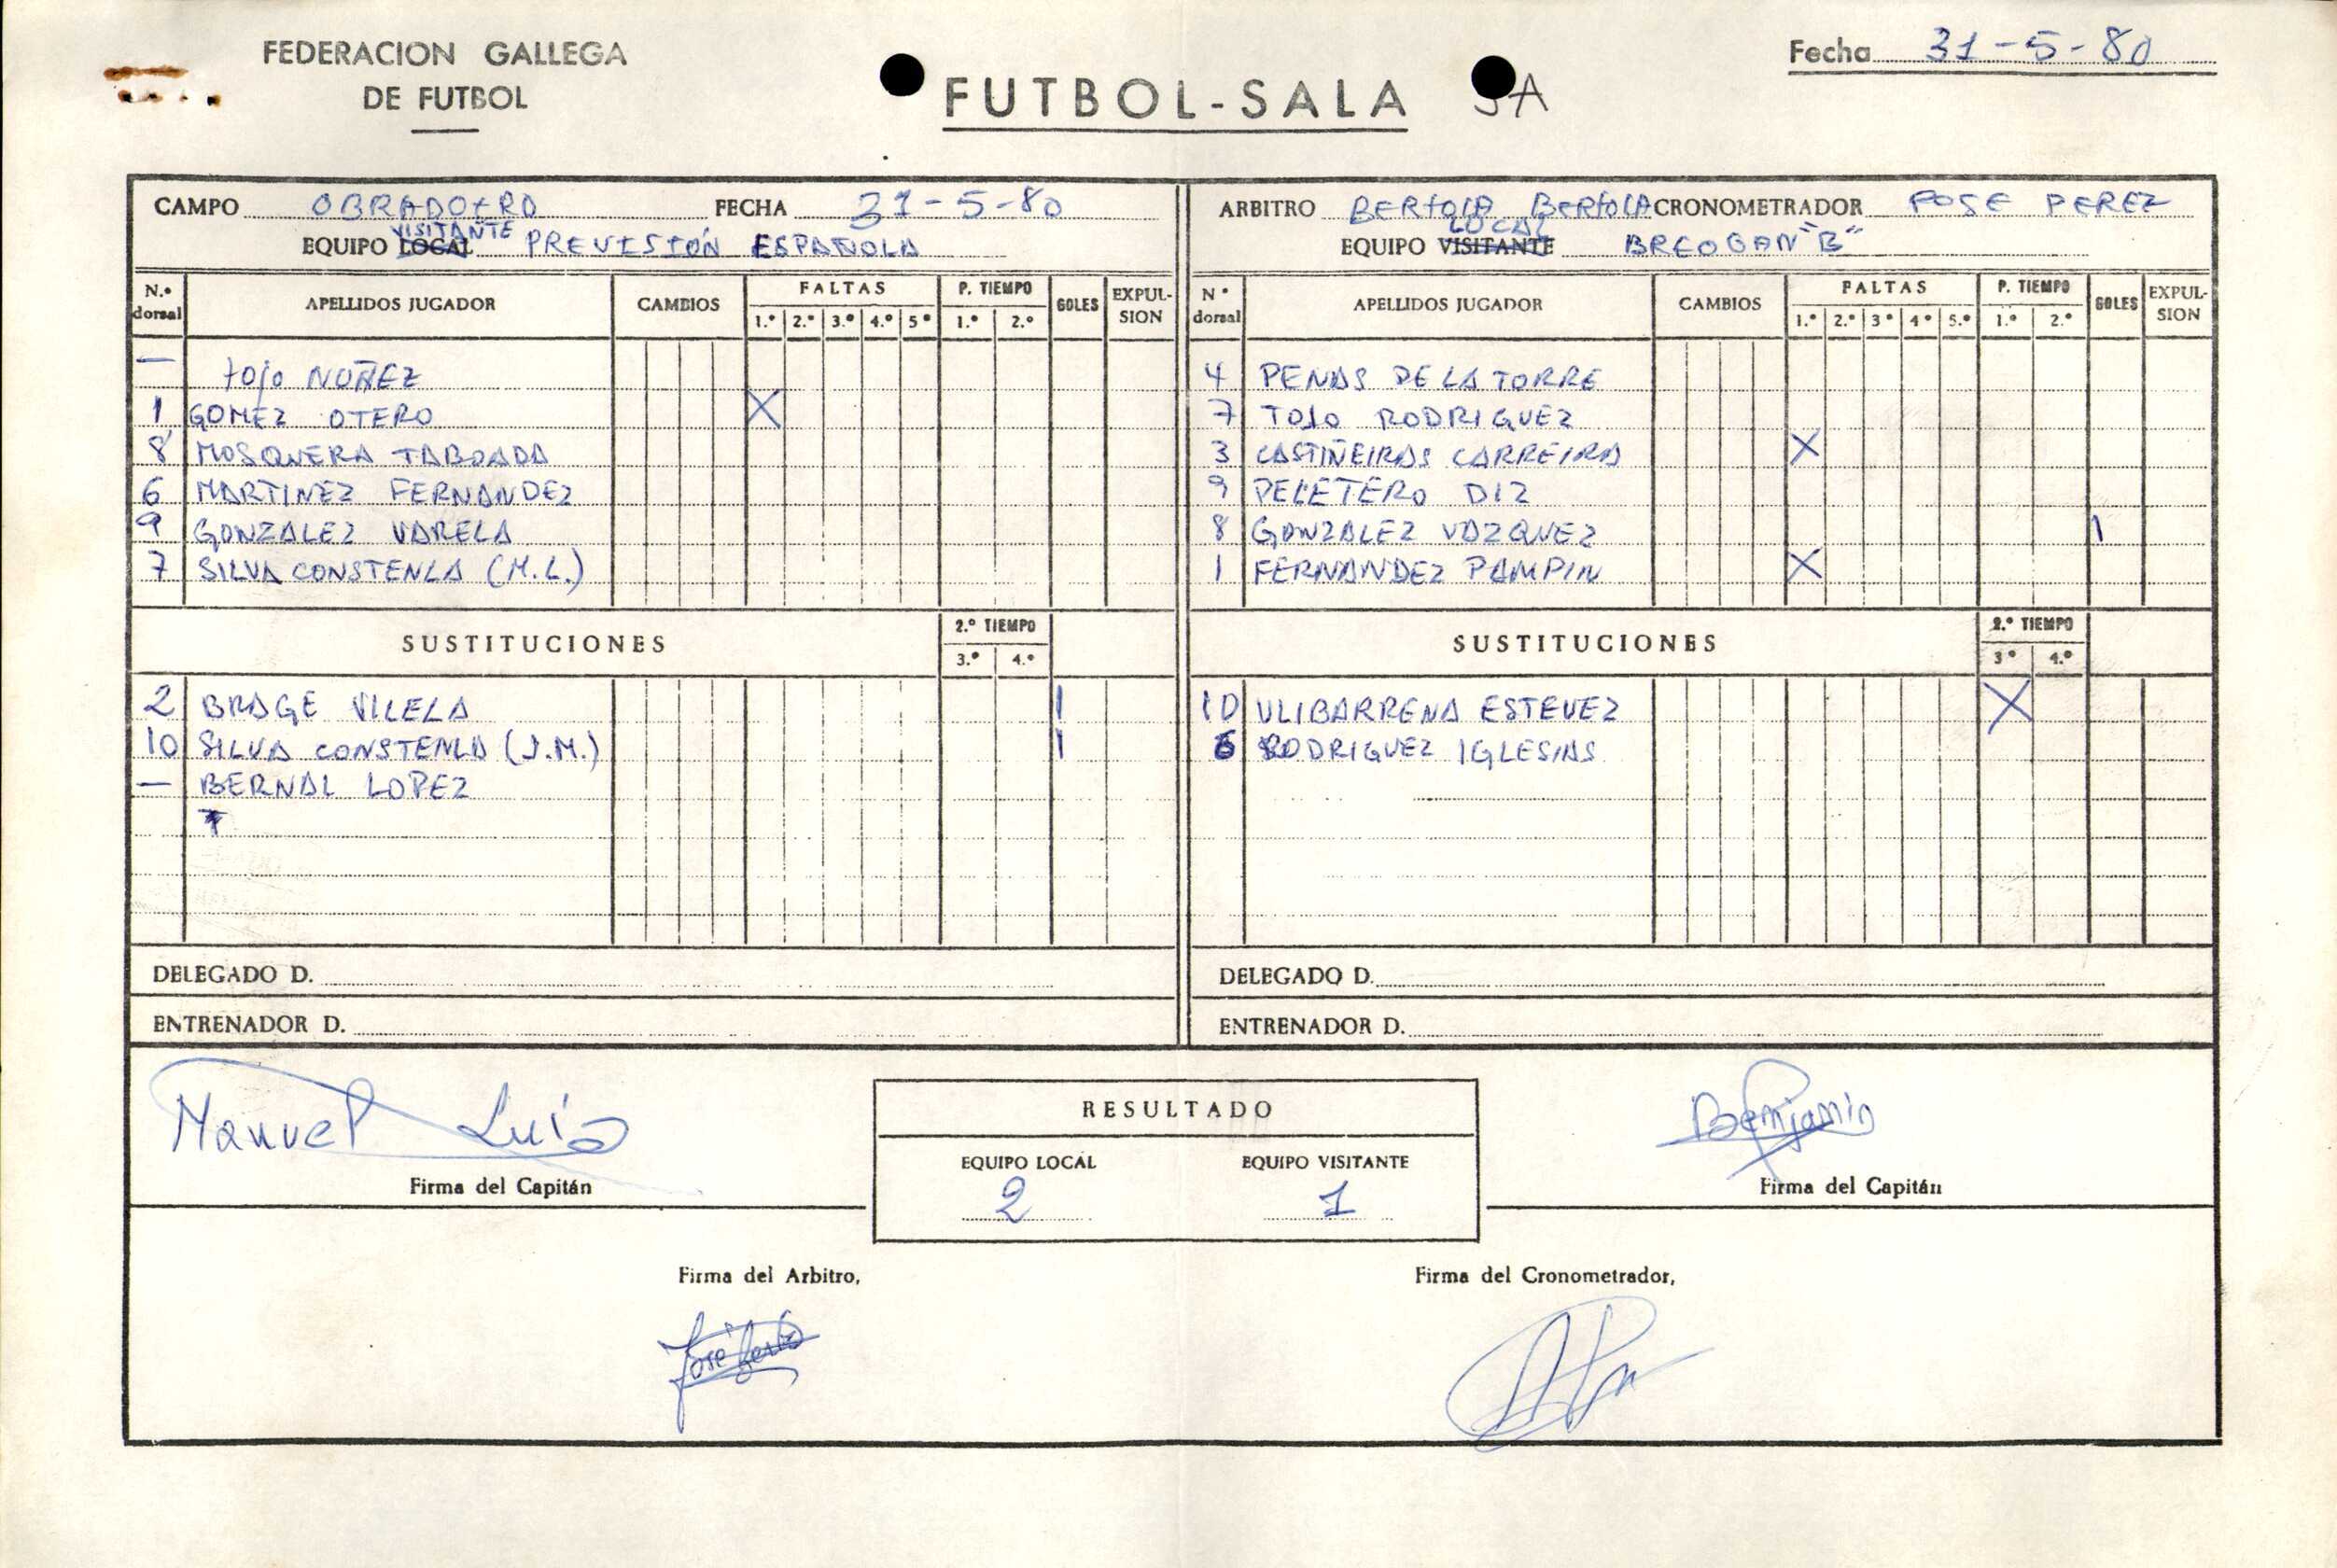 FEDERACION GALLEGA
DE FUTBOL
FUTBOL-SALA
Fecha 31-5-80
CAMPO OBRADOIRO FECHA 31-5-80
VISITANTE
EQUIPO LOCAL PREVISIÓN ESPAÑOLA
N.º dorsal APELLIDOS JUGADOR CAMBIOS FALTAS 1.º 2.º 3.º 4.º 5º P. TIEMPO 1.º 2.º GOLES EXPULSION
— tojo NUÑEZ
1 GOMEZ OTERO X
8 MOSQUERA TABOADA
6 MARTINEZ FERNANDEZ
9 GONZALEZ VARELA
7 SILVA CONSTENLA (M.L.)
SUSTITUCIONES 2.º TIEMPO 3.º 4.º
2 BRAGE VILELA 1
10 SILVA CONSTENLA (J.M.) 1
— BERNAL LOPEZ
DELEGADO D.
ENTRENADOR D.
ARBITRO BERTOLA BERTOLA CRONOMETRADOR POSE PEREZ
LOCAL
EQUIPO VISITANTE BREOGAN "B"
Nº dorsal APELLIDOS JUGADOR CAMBIOS FALTAS 1.º 2.º 3º 4º 5.º P. TIEMPO 1.º 2.º GOLES EXPULSION
4 PENAS DE LA TORRE
7 TOJO RODRIGUEZ
3 CASTIÑEIRAS CARREIRA X
9 PELETERO DIZ
8 GONZALEZ VAZQUEZ 1
1 FERNANDEZ PAMPIN X
SUSTITUCIONES 2.º TIEMPO 3º 4.º
10 ULIBARRENA ESTEVEZ X
6 RODRIGUEZ IGLESIAS
DELEGADO D.
ENTRENADOR D.
Manuel Luis
Firma del Capitán
RESULTADO
EQUIPO LOCAL EQUIPO VISITANTE
2 1
Benjamin
Firma del Capitán
Firma del Arbitro,
José
Firma del Cronometrador,